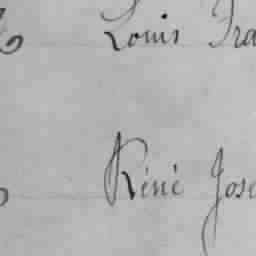 Louis Fra
Réné Jose